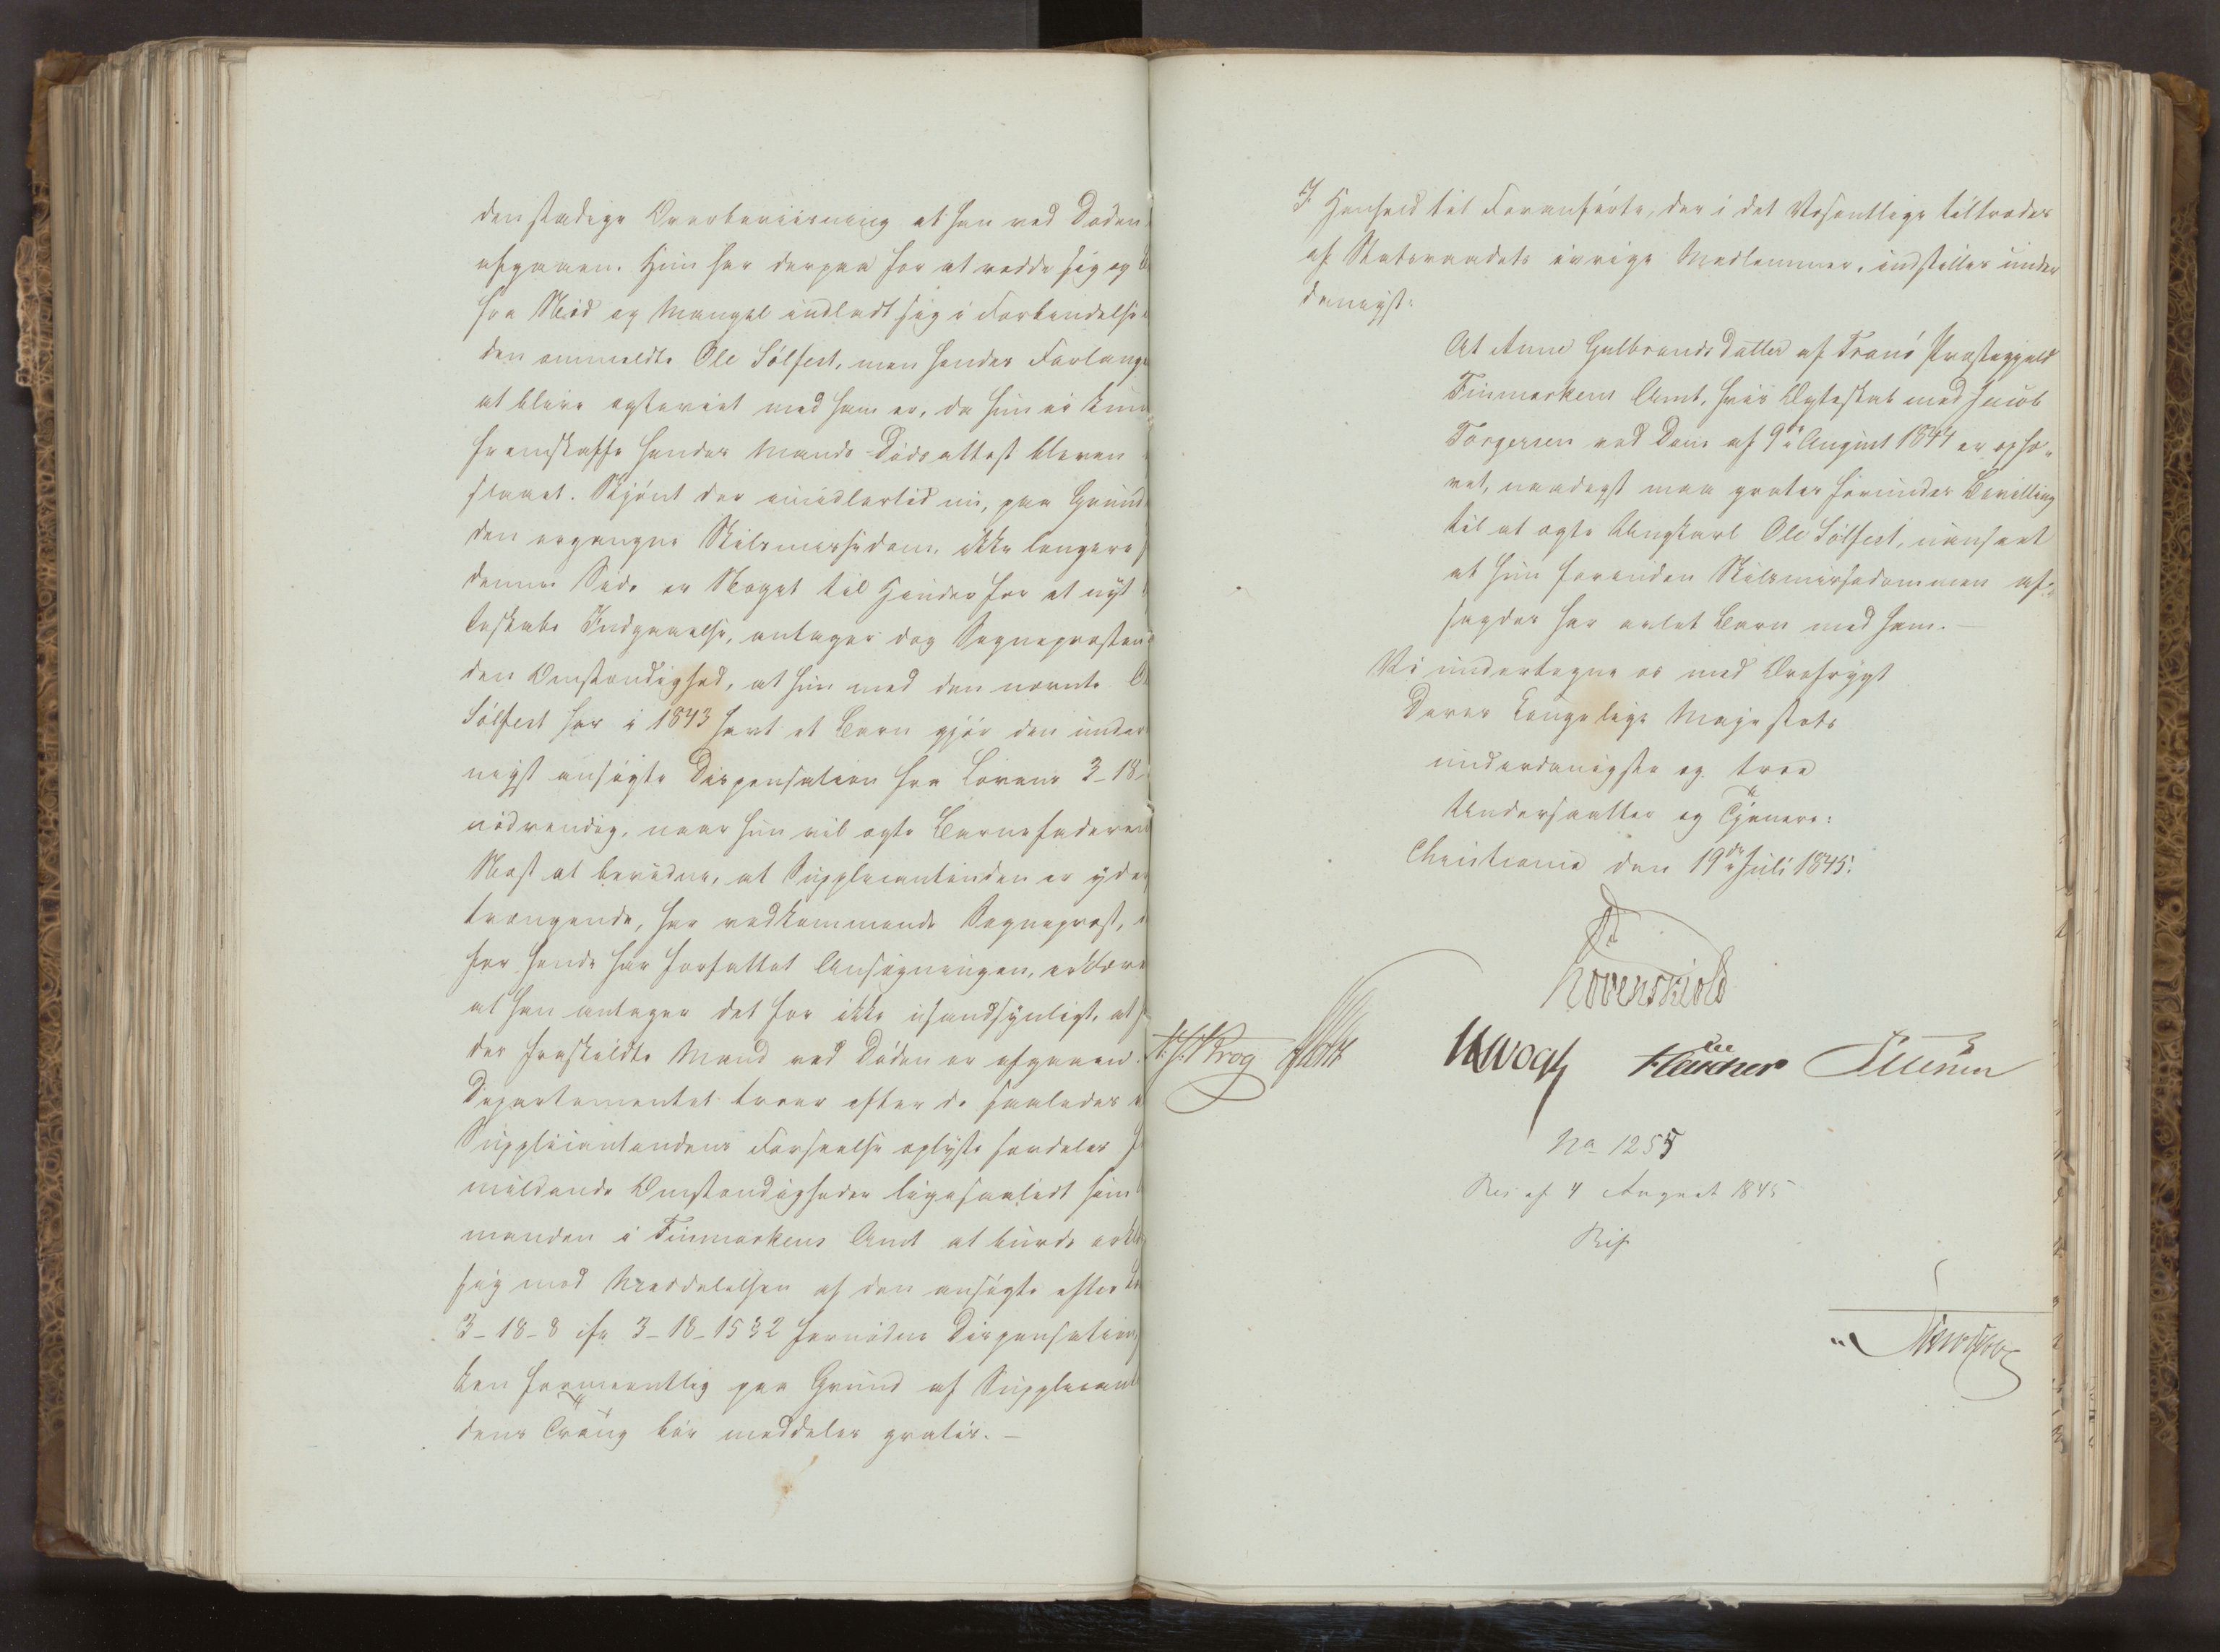 den stadige Overbeviisning at han ved Døden
afgaaen. Hun har derpaa for at redde sig og
fra Nød og Mangel indladt sig i Forbindelse
den ommeldte Ole Sølfest, men hendes Forlange
at blive egteviet med ham er, da hun ei kun
fremskaffe hendes Mands Dødsattest bleven
slaaet. Skjønt der imidlertid nu, paa Grund
den ergangne Skilsmissedom, ikke længere
denne Side er Noget til Hinder for et nyt
teskabs Indgaaelse, antager dog Sognepræsten
den Omstændighed, at hun med den nævnte O
Sølfest har i 1843 havt et Barn gjør den under
nigst ansøgte Dispensation fra Lovens 3-18-
nødvendig, naar hun vil egte Barnefaderen
Næst at bevidne, at Supplicantinden er yder
trængende, har vedkommende Sognepræst,
for hende har forfattet Ansøgningen, erklære
at han antager det for ikke usandsynligt, at
des fraskildte Mand ved Døden er afgaaen.
Departementet troer efter de saaledes
Supplicantindens Forseelse oplyste særdeles
mildende Omstændigheder ligesaalidt som
manden i Finmarkens Amt at burde erkl
sig mod Meddelelsen af den ansøgte efter Lo
3-18-8 cfr 3-18-15 § 2 fornødne Dispensation,
ken formeentlig paa Grund af Supplicant
dens Trang bør meddeles gratis. —
I Henhold til Foranførte, der i det Væsentlige tiltrædes
af Statsraadets øvrige Medlemmer, indstilles under
danigst:
At Anne Gulbrandsdatter af Tranø Præstegjeld
Finmarkens Amt, hvis Ægteskab med Jacob
Torgersen ved Dom af 9de August 1844 er ophæ„
vet, naadigst maa gratis forundes Bevilling
til at egte Ungkarl Ole Sølfest, uanseet
at hun forinden Skilsmissedommen af„
sagdes har avlet Barn med ham. —
Vi undertegne os med Ærefrygt
Deres Kongelige Majestæts
underdanigste og troe
Undersaatter og Tjenere:
Christiania den 19de Juli 1845.
Løvenskiold
Krog Holst Vogt
No 1255
Res af 4 August 1845